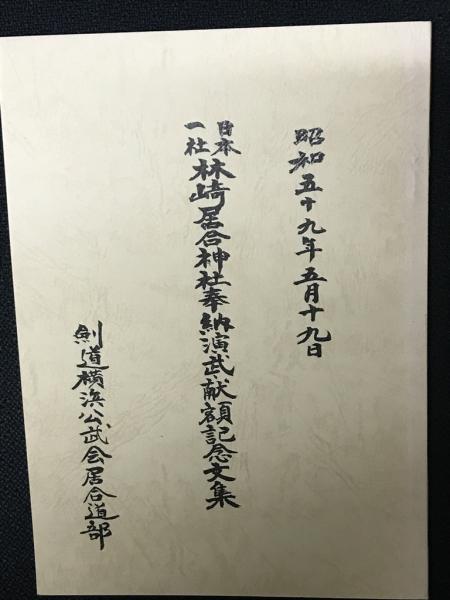 昭和五十九年五月十九日
日本一社林崎居合神社奉納演武献額記念文集
剣道横浜公武会居合道部